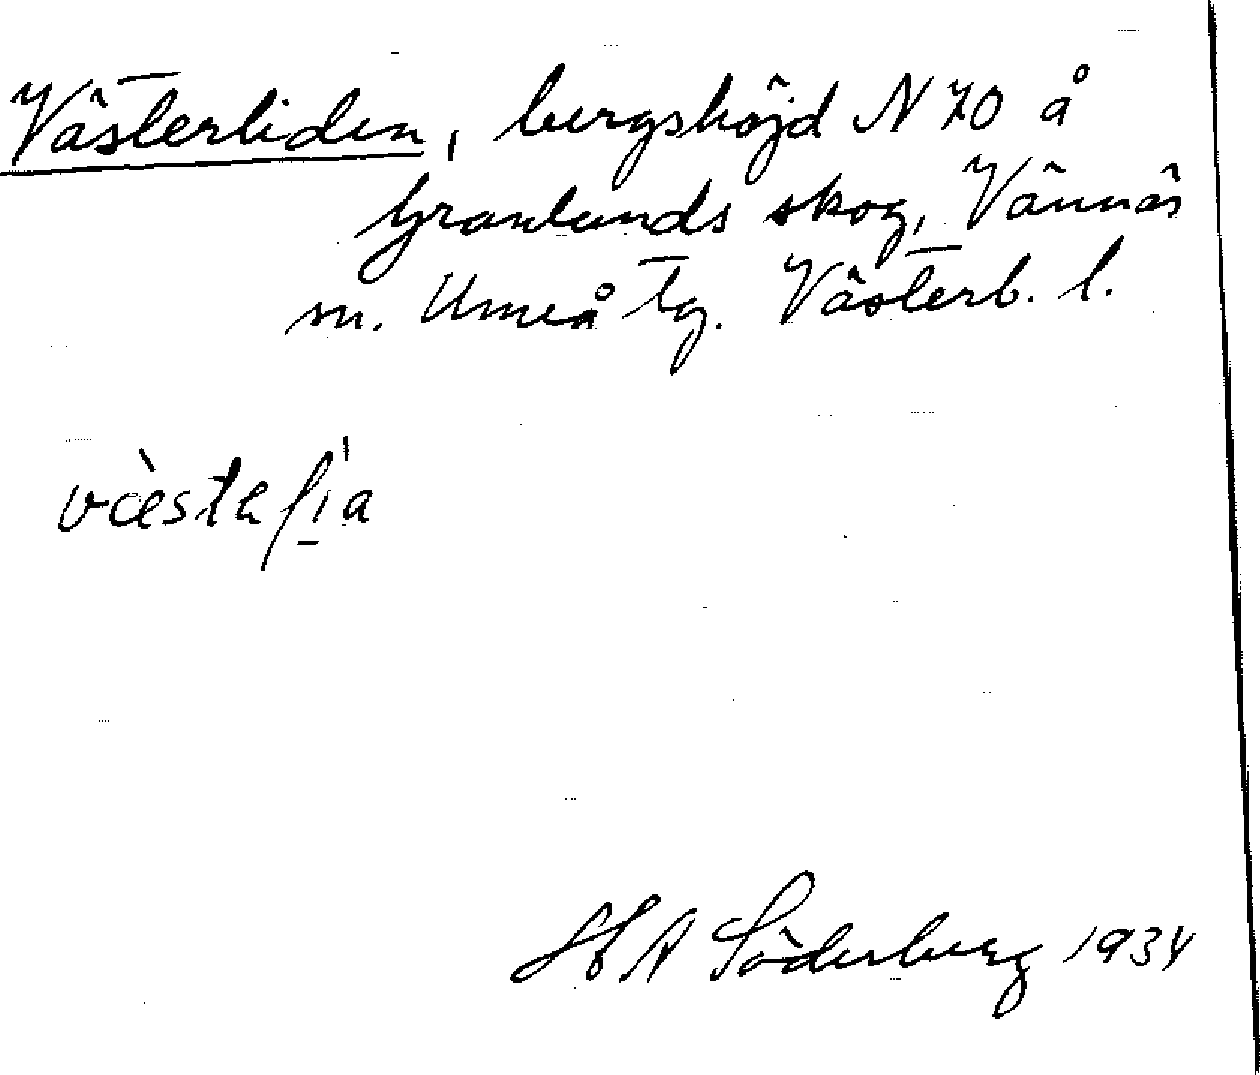 Västerliden, bergshöjd N 70 å
Granlunds skog, Vännäs
sn. Umeå tg. Västerb. l.
H A Söderberg 1934